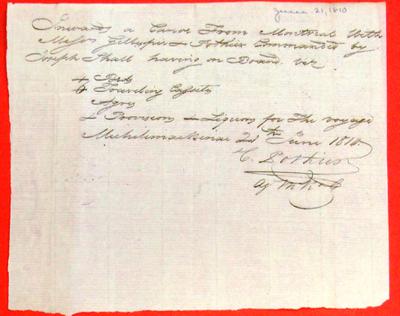 June 21, 1810
Inwards a Canoe From Montreal With
Messrs Gillespie & Pothier Commanded by
Joseph Thall having on Board viz
4 Beds
4 Traveling Cassets
Agres
& Provisions & Liquors for the voyage
Michilimackinac 21th June 1810
Pothier